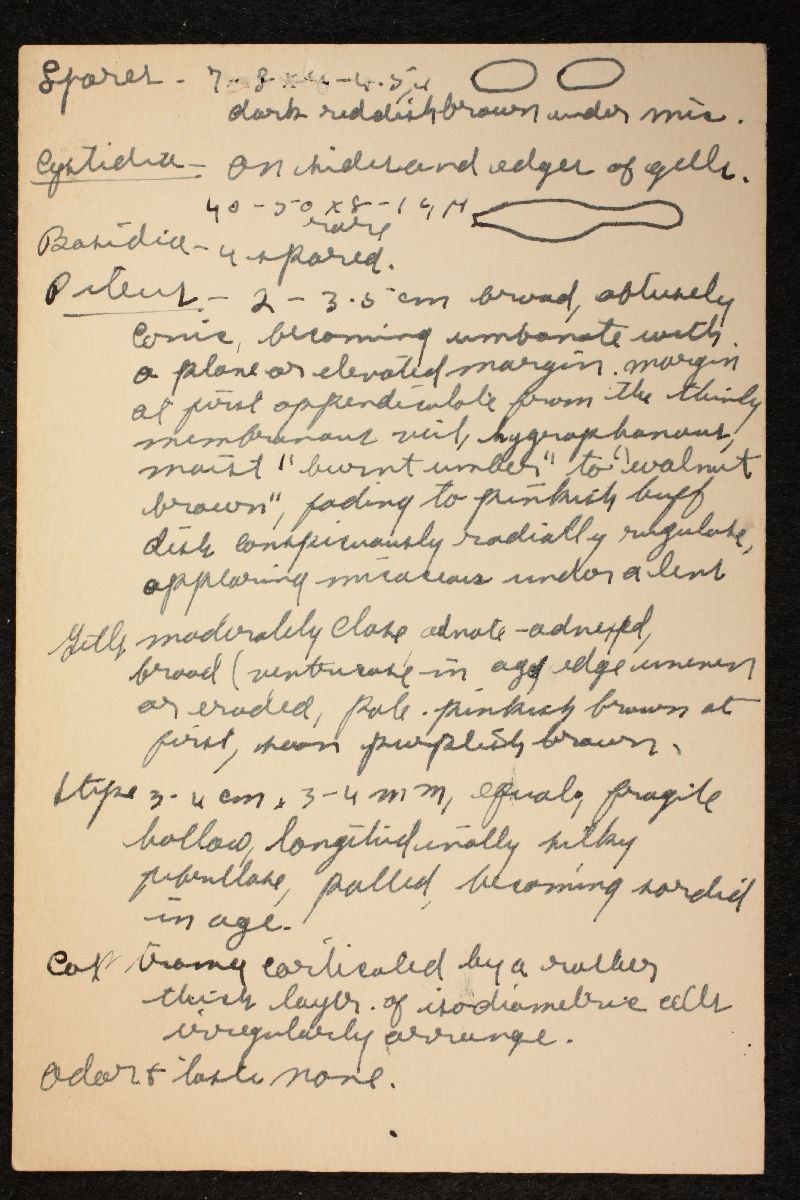 Spores - 7-8 x 4-4.5 µ
dark reddish brown under mic.
Cystidia - on sides and edges of gills.
40-50 x 8-14 µ
rare
Basidia - 4 spored.
Pileus - 2-3.5 cm broad, obtusely
conic, becoming umbonate with
a plane or elevated margin. margin
at first appendiculate from the thinly
membranous veil, hygrophanous,
moist "burnt umber" to "walnut
brown", fading to pinkish buff
disk conspicuously radially rugulose,
appearing micaceous under a lens
Gills moderately close, adnate-adnexed,
broad (ventricose in age edge uneven
or eroded, pale pinkish brown at
first, soon purplish brown.
Stipe 3-4 cm x 3-4 mm, equal, fragile
hollow, longitudinally silky
fibrillose, pallid, becoming sordid
in age.
corticated by a rather
thick layer of isodiametric cells
irregularly arrange.
Odor & taste none.